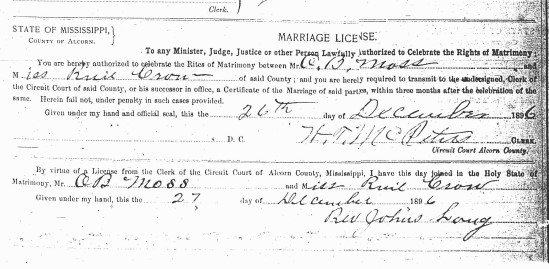 Clerk.
STATE OF MISSISSIPPI,
COUNTY OF ALCORN.
MARRIAGE LICENSE.
To any Minister, Judge, Justice or other Person Lawfully Authorized to Celebrate the Rights of Matrimony:
You are hereby authorized to celebrate the Rites of Matrimony between Mr. C. B. Moss and
Miss Ruie Crow of said County; and you are hereby required to transmit to the undersigned, Clerk of
the Circuit Court of said County, or his successor in office, a Certificate of the Marriage of said parties, within three months after the celebration of the
same. Herein fail not, under penalty in such cases provided.
Given under my hand and official seal, this the 26th day of December 1896
D. C. H. T. McPeters CLERK
Circuit Court Alcorn County
By virtue of a License from the Clerk of the Circuit Court of Alcorn County, Mississippi, I have this day joined in the Holy State of
Matrimony, Mr. CB Moss and Miss Ruie Crow
Given under my hand, this the 27 day of December 1896
Rev John's Long